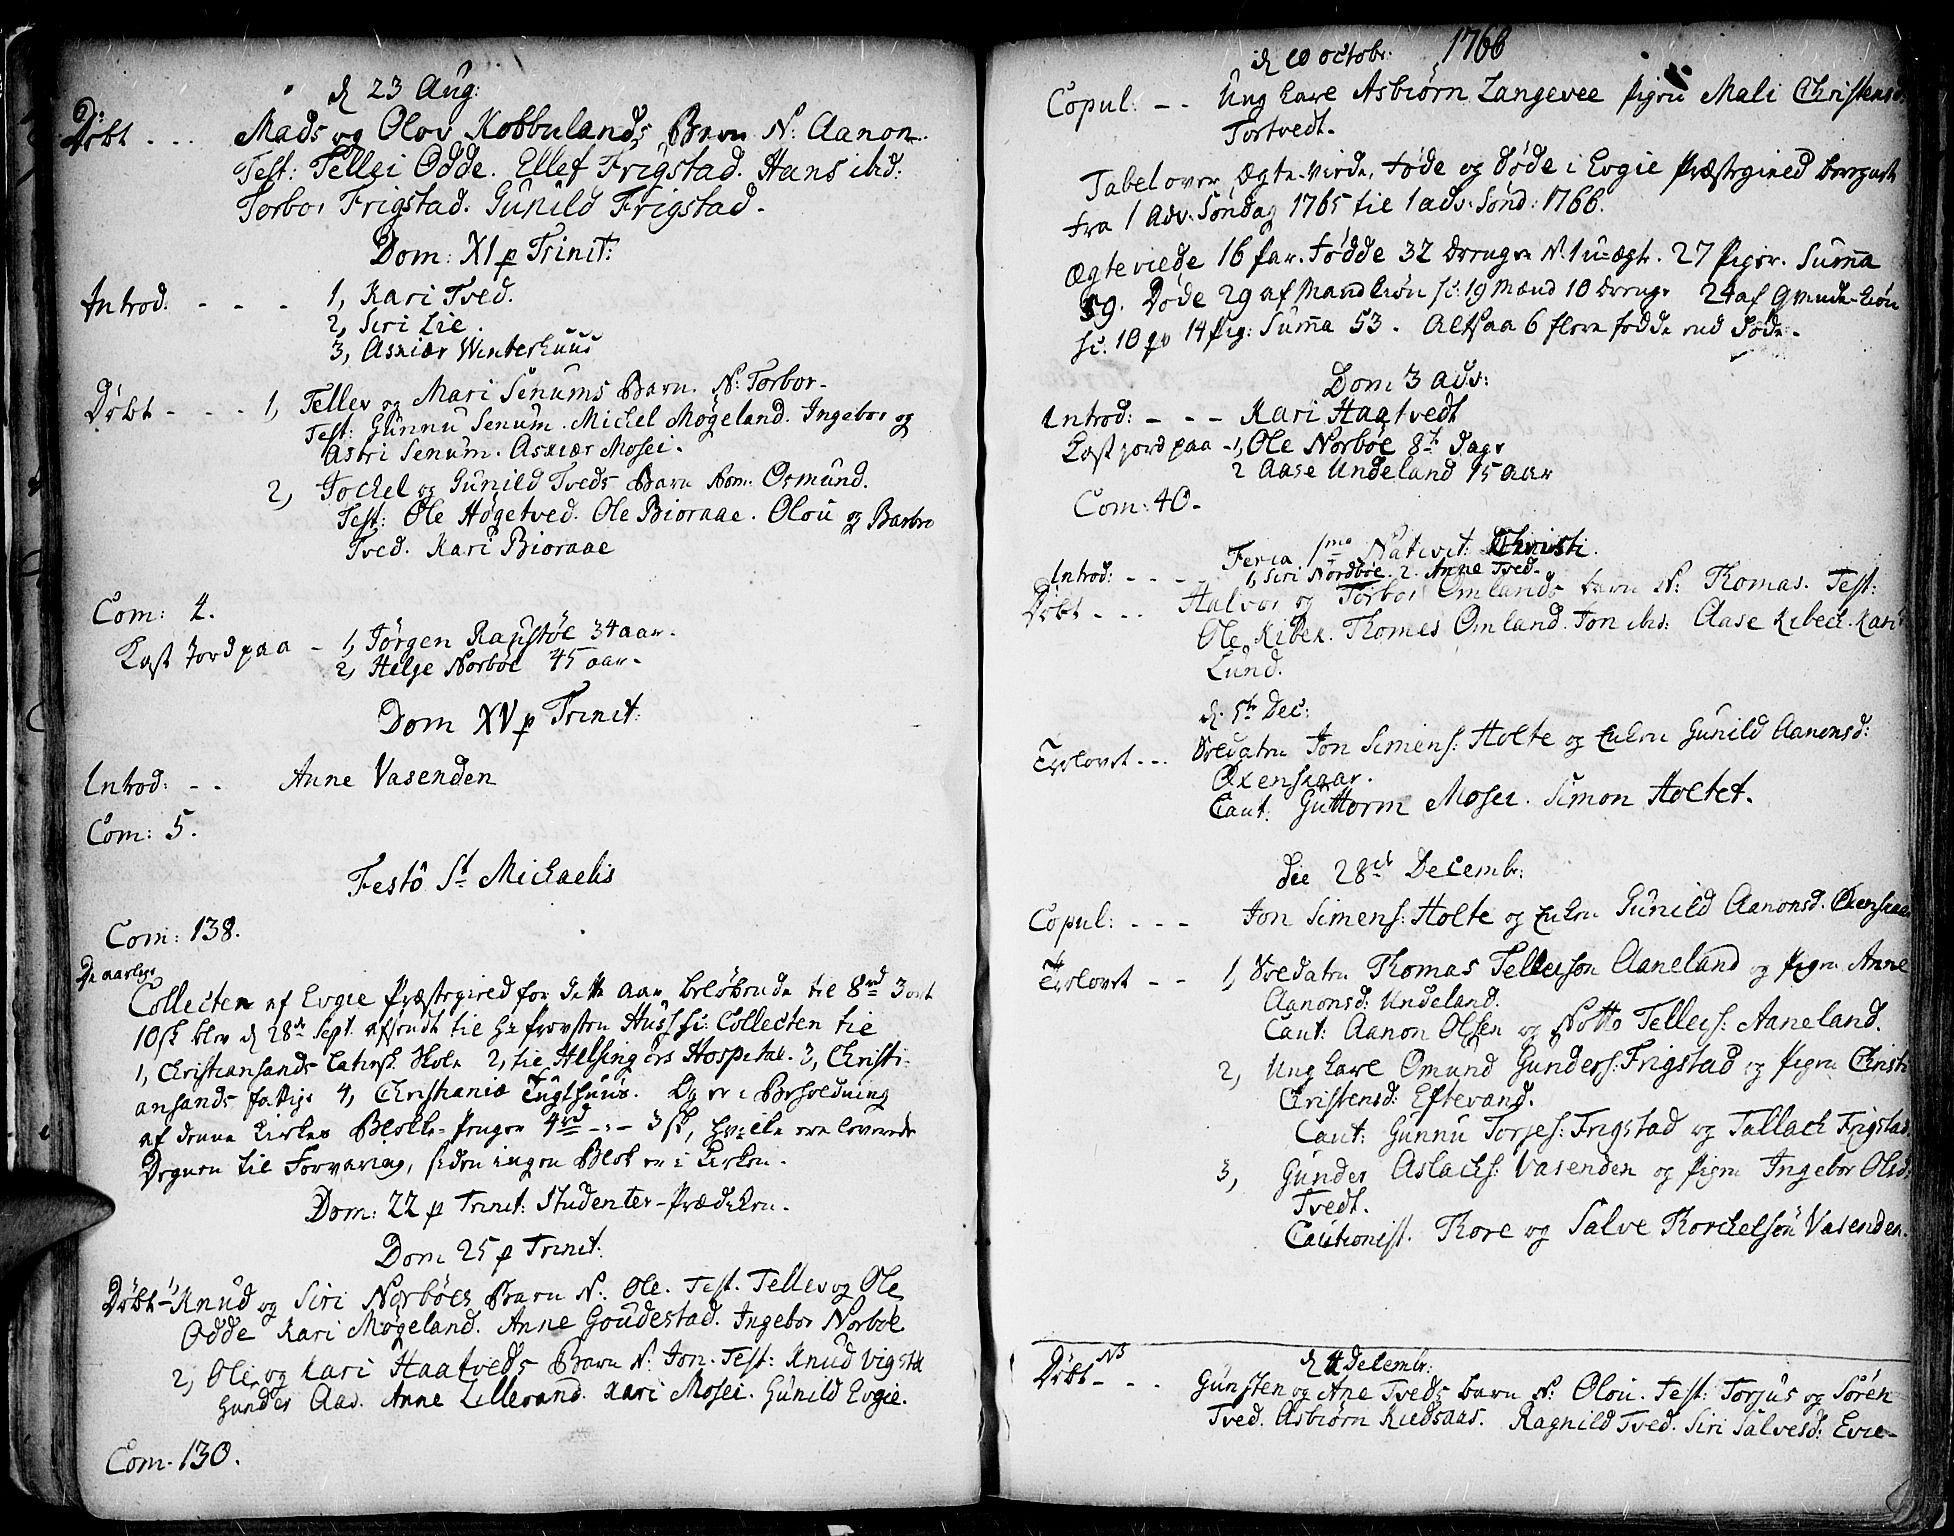 d 23 Aug:
Døbt - - - Mads og Olov Kobbulands Barn N: Aanon.
Test: Tellei Odde. Ellef Frigstad. Hans ibd:
Torbor Frigstad. Gunild Frigstad.
Dom: XI p Trinit:
Introd: - - - 1, Kari Tved.
2, Siri Lie.
3, Askiær Winterhuus
Døbt - - - 1, Tellev og Mari Senums Barn. N: Torbor.
Test: Gunnu Senum. Michel Møgeland. Ingebor og
Astri Senum. Askiær Mosei.
2, Tochel og Gunild Tveds Barn Nom: Osmund.
Test: Ole Høgetved. Ole Bioraae. Olou og Barbro
Tved. Kari Bioraae
Com: 4.
Kast Jord paa - 1, Jörgen Raustöe 34 aar.
2, Helge Norböe 45 aar.
Dom XV p Trinit:
Introd: - - Anne Vasenden
Com: 5.
Festo St Michaelis
Com: 138.
De aarlige
Collecter af Evgie Præstegield for dette Aar beløbende til 8rd 3 ort
10 sk blev d 28de Sept. afsendt til Hr Provsten Huss sc: Collecten til
1, Christiansands Latinsk Skole 2, til Helsingørs Hospital. 3, Christi-
ansands fattige 4, Christianiæ Tugthuus. Og er i Beholdning
af denne Kirkes Blokke-Penger 4rd -:- 3 sk, hvilke ere leverede
Degnen til Forvaring, siden ingen Blok er i Kirken.
Dom: 22 p Trinit: Studenter-Prædiken.
Dom 25 p Trinit:
Døbt - 1, Knud og Siri Norböes Barn N: Ole. Test. Tellev og Ole
Odde Kari Møgeland. Anne Goudestad. Ingebor Norböe
2, Ole og Kari Haatveds Barn N: Jon. Test: Knud Vigstøl
Gunder Aas. Anne Lillerand. Kari Mosei. Gunild Evgie.
Com. 130.
d 10 octobr: 1766
Copul: - - Ung Karl Asbiørn Langevee Pigen Mali Christensd:
Tortvedt.
Tabel over Ægte-viede, Føde og Døde i Evgie Præstegield
fra 1 Adv: Søndag 1765 til 1 adv: Sønd: 1766.
Ægteviede 16 par. Fødde 32 Drenger N. 1 u-ægte. 27 Piger. Summa
59. Døde 29 af Mandkiøn sc: 19 Mænd 10 Drenge 24 af Qvinde-kiøn
sc: 10 qv 14 Pig: Summa 53. Altsaa 6 flere fødde end Døde.
Dom 3 adv:
Introd: - - - Kari Haatvedt
Kast jord paa - 1, Ole Norböe 8te Dage
2 Aase Undeland 15 aar
Com: 40.
Feria 1ma Nativit: Christi.
Introd: - - - 1, Siri Nordböe. 2. Anne Tved.
Døbt - - - Halvor og Torbor Omlands barn N: Thomas. Test:
Ole Kibek. Thomes Omland. Jon ibd: Aase Kibeck. Kari
Lund.
d. 5te Dec:
Trolovet - - - Soldaten Jon Simens: Holte og Enken Gunild Aanonsd:
Oxensaar.
Caut: Guttorm Mosei. Simon Holtet.
die 28de Decembr:
Copul: - - - Jon Simens: Holte og Enken Gunild Aanonsd. Oxensaar
Trolovet - - 1, Soldaten Thomas Tellefson Aaneland og Pigen Anne
Aanonsd: Undeland.
Caut: Aanon Olsen og Notto Tellefs: Aaneland.
2, Ung Karl Omund Gunders: Frigstad og Pigen Christi
Christensd: Eftevand.
Caut: Gunnu Torjes: Frigstad og Tallach Frigstad
3, Gunder Aslachs: Vasenden og Pigen Ingebor Olsd:
Tvedt.
Cautionist. Thore og Salve Thorchelsøn Vasenden.
d 4 Decembr:
Døbt NB - - - Gunsten og Ane Tveds barn N: Olou. Test: Torjus og Søren
Tved. Asbiørn Kiedsaas. Ragnild Tved. Siri Salvesd: Evie-